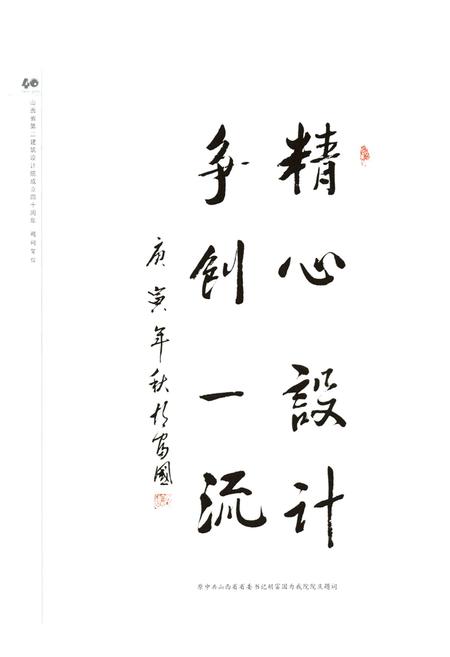 精心設计
争创一流
庚寅年秋 胡富國
原中共山西省省委书记胡富国为我院院庆题词
40
山西省第二建筑设计院成立四十周年 题词贺信